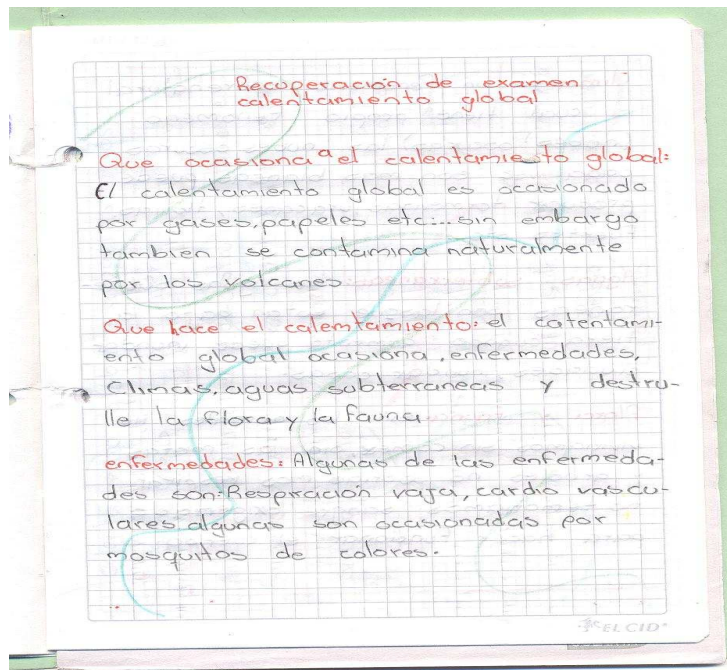 Recuperación de examen
calentamiento global
Que ocasiona a el calentamiento global:
El calentamiento global es occasionado
por gases, papeles etc... sin embargo
tambien se contamina naturalmente
por los volcanes
Que hace el calemtamiento: el catentami-
ento global ocasiona, enfermedades,
Climas, aguas subterraneas y destru-
lle la flora y la fauna
enfermedades: Algunas de las enfermeda-
des son: Respración vaja, cardio vascu-
lares algunas son ocasionadas por
mosquitos de colores.
EL CID